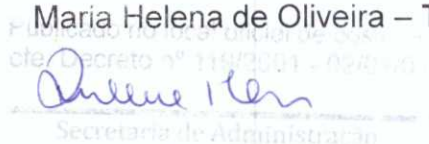 Maria Helena de Oliveira – T
Publicado no local oficial de
cfe. Decreto nº 118/2001 - 02/01/0
Secretaria de Administração